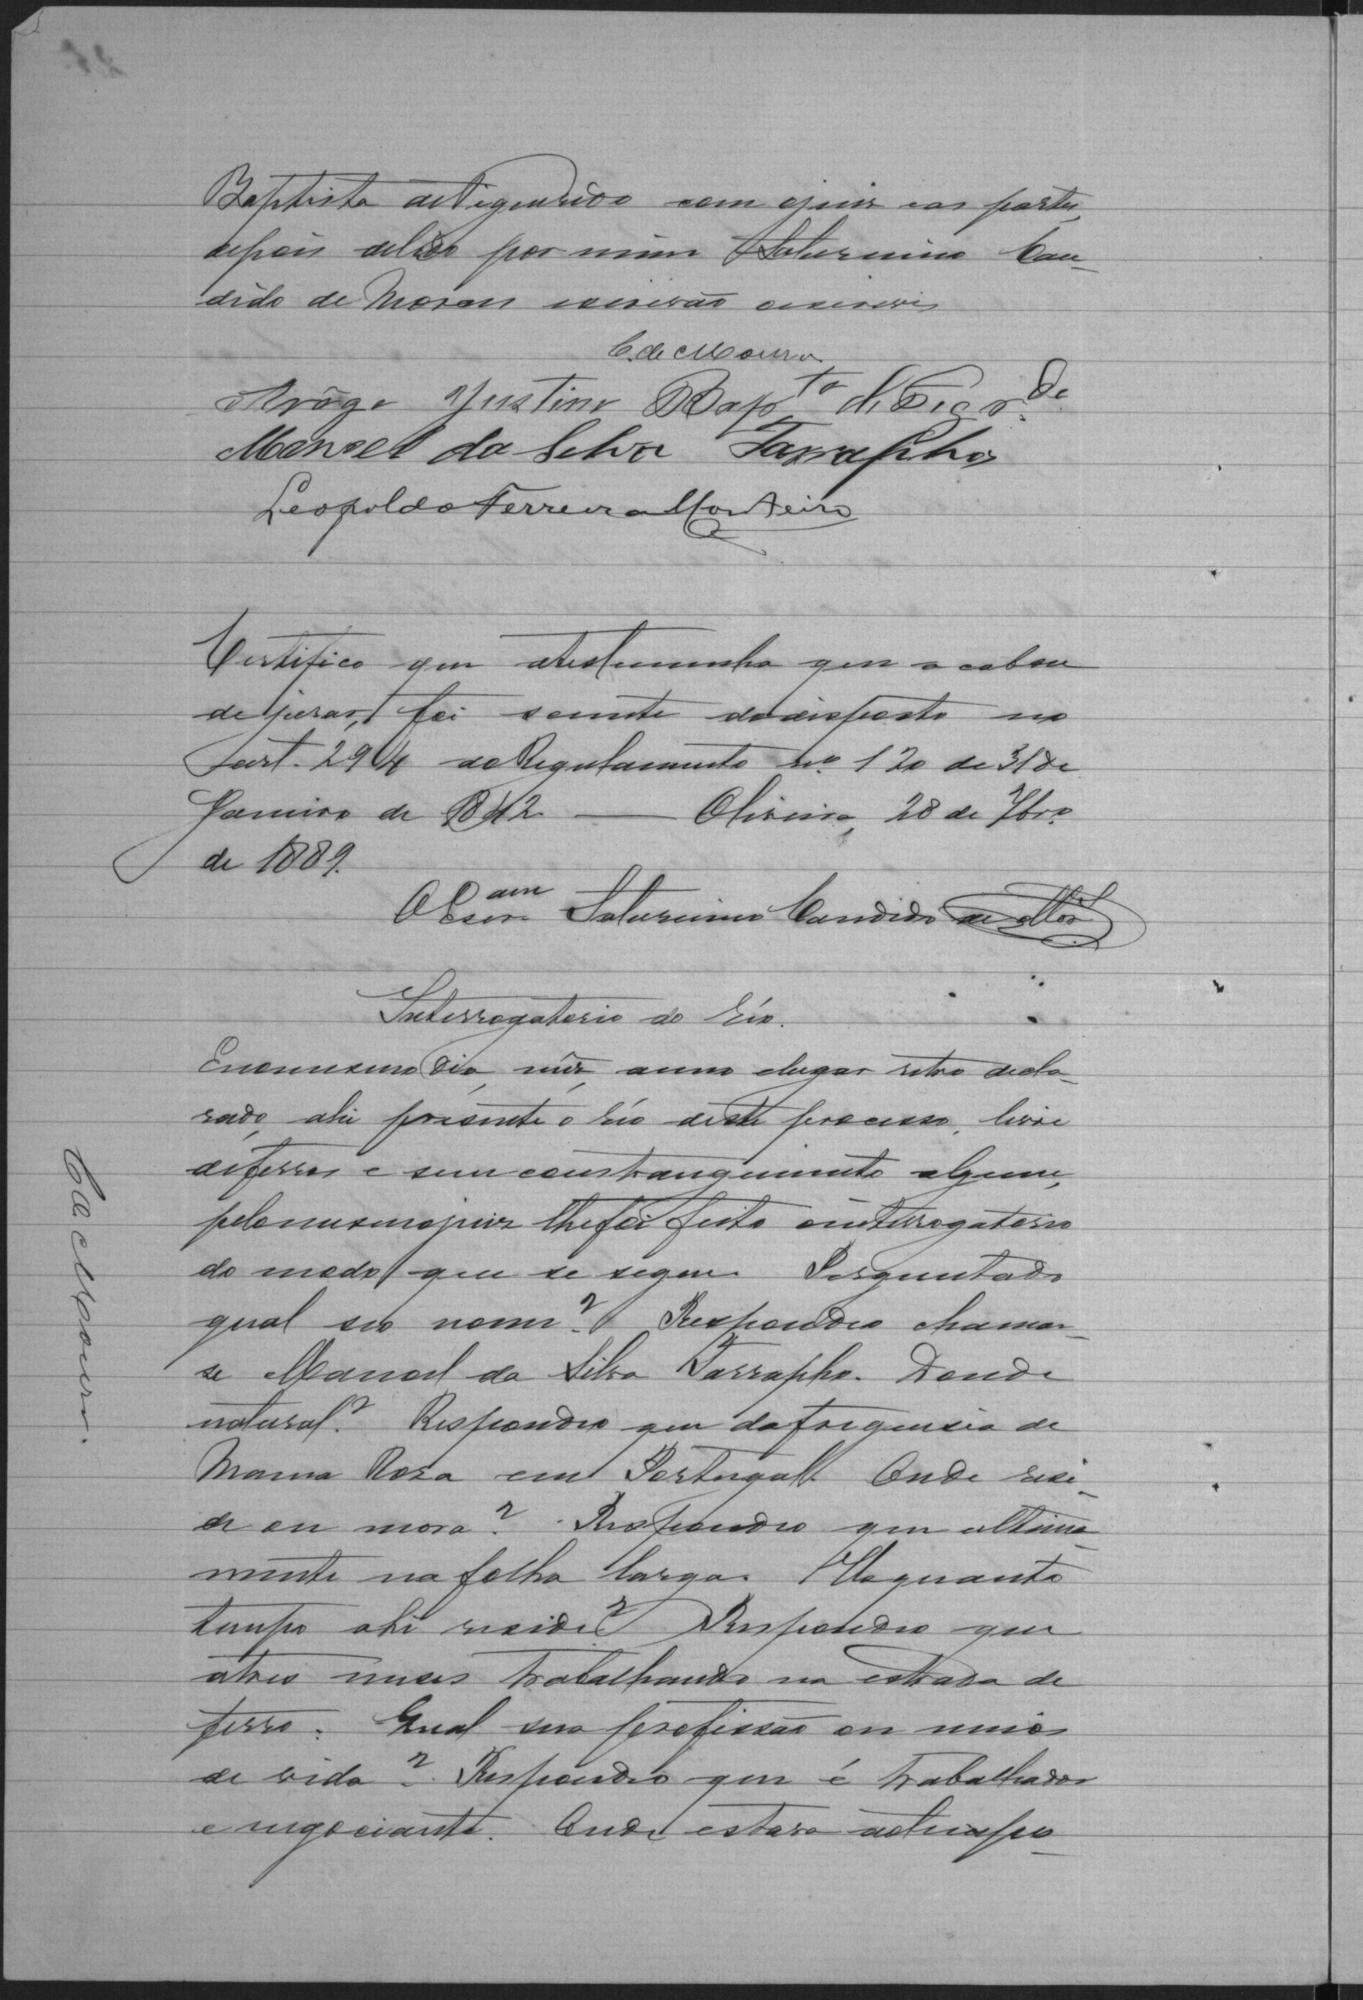 Baptista de Figueiredo com o juiz e as partes,
depois de lido por mim Saturnino Can-
dido de Moraes escrivão o escrevi
C. de Moura.
Justino Bap.ta de Figr.do
Manoel da Selva Tarrapho
Leopoldo Ferreira Monteiro
Certifico que a testemunha que acabou
de jurar, foi sciente do disposto no
art. 294 do Regulamento nº 120 de 31 de
Janeiro de 1842 — Oliveira, 28 de 7brº
de 1889.
O Escram Saturnino Candido de Mors
Interrogatorio do réo.
Em o mesmo dia, mêz, anno e lugar retro decla-
rado, ahi presente o réo deste processo, livre
de ferros e sem constrangimento algum,
pelo mesmo juiz lhe foi feito o interrogatorio
do modo que se segue. Perguntado
qual seo nome? Respondeo chamar-
se Manoel da Silva Tarrapho. Donde
natural? Respondeo que da freguesia de
Rosa em Portugal. Onde resi-
de ou mora? Respondeo que ultima-
mente na folha larga. Ha quanto
tempo ahi reside? Respondeo que
a tres meses trabalhando na estrada de
ferro. Qual sua profissão ou meios
de vida? Respondeo que é trabalhador
e negociante. Onde estava ao tempo
C de Moura.